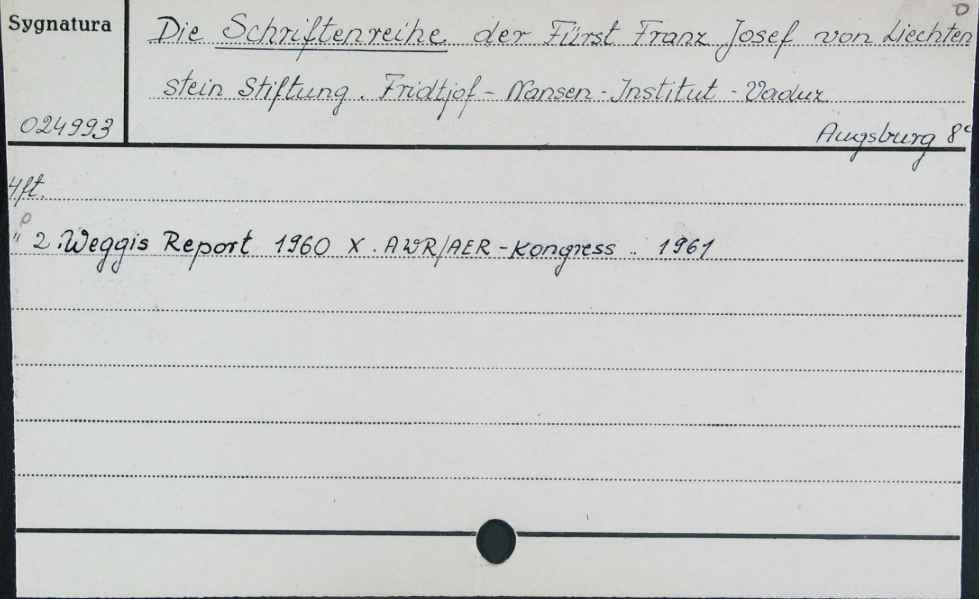 Sygnatura
Die Schriftenreihe der Fürst Franz Josef von Liechten
stein Stiftung. Fridtjof - Nansen - Institut - Vaduz
024993
Augsburg 8°
" 2. Weggis Report 1960 X. AWR/AER - Kongress .. 1961